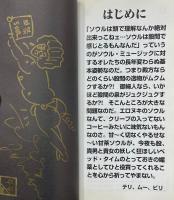 はじめに
「ソウルは頭で理解なんか絶対
出来ってねェ…ソウルは股間で
感じとるもんなんだ」っていう
のがソウル・ミュージックに対
するオレたちの長年変わらぬ基
本姿勢なのだ。つまり殿方なら
どのくらい股間の道鏡がムクム
クするか?! 御婦人なら、いか
ほど股間の泉がジュクジュクす
るか?! そこんところが大きな
問題なのだ。エロヌキのソウル
なんて、クリープの入ってない
コーヒーみたいに味気ないもん
なのさ。甘〜く切なくやるせな
〜い甘茶ソウルが、今夜も殿、
貴男と貴女の妖しく狂ほしいベ
ッド・タイムのとっておきの媚
薬として引と役買ってくれるこ
とを心から祈ってやまない。
テリ、ムー、ピリ